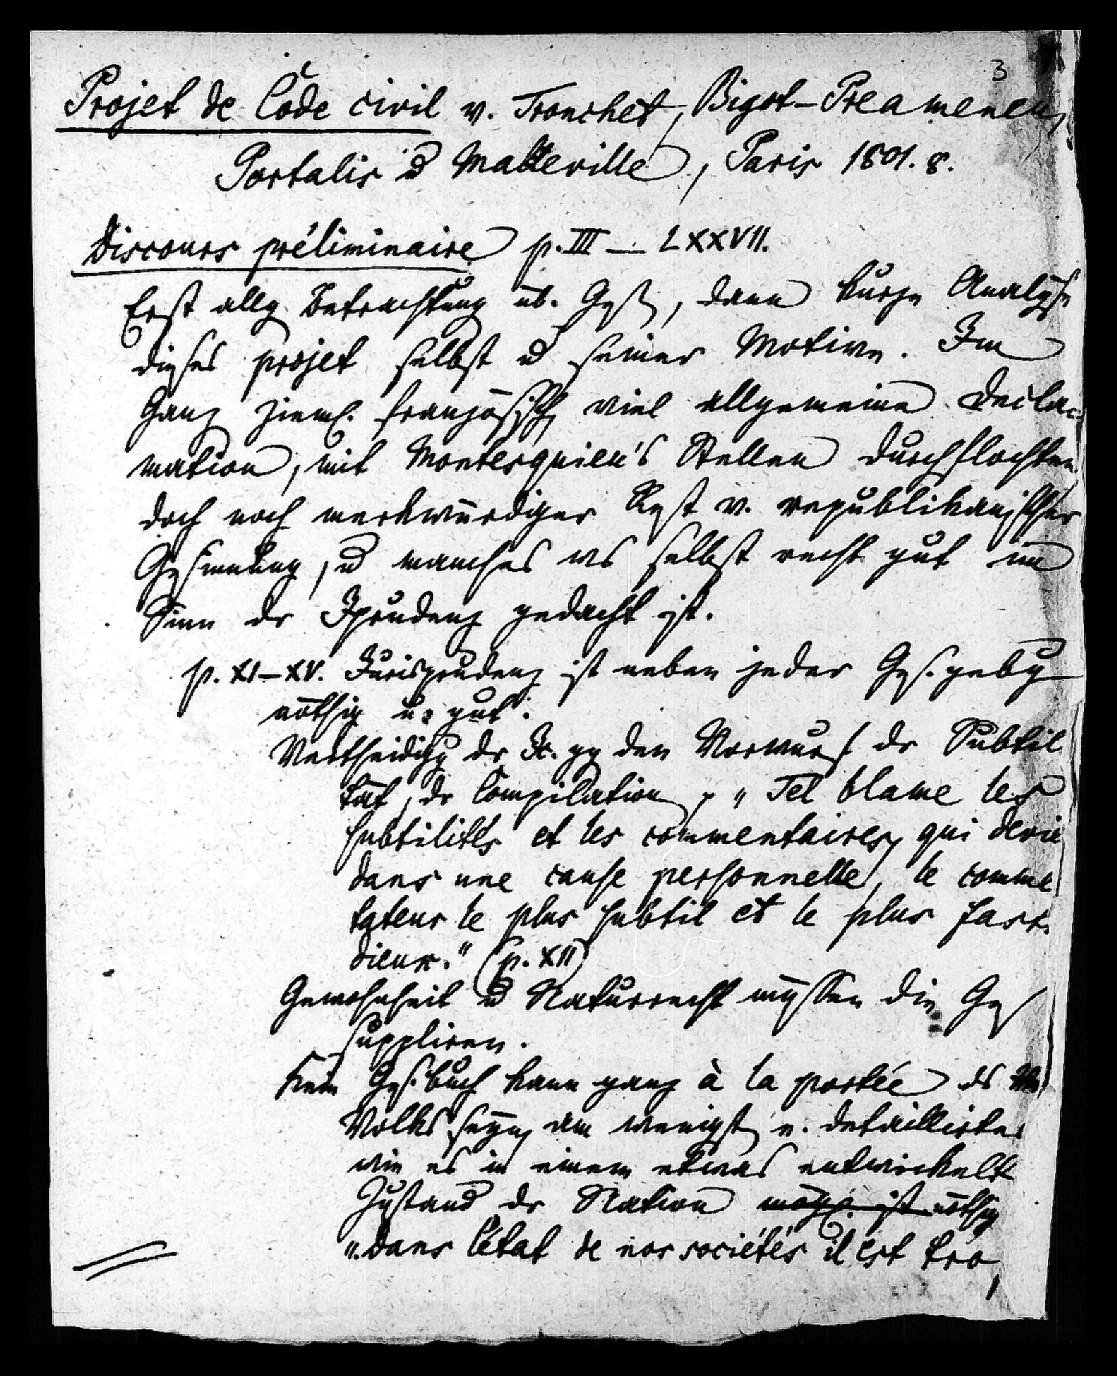 3
Projet de Code civil v. Tronchet, Bigot-Preameneu,
Portalis u Malleville, Paris 1801. 8.
Discours préliminaire p. III — LXXVII.
Erst allg Betrachtung üb. Gesz, dann kurze Analyse
dieses projet selbst u seiner Motive. Im
Ganz zieml. französisch, viel allgemeine Decla-
mation, mit Montesquieu's Stellen durchflochten
doch noch merkwürdiger Rest v. republikanischer
Gesinnung, u manches ws selbst recht gut im
Sinn dr Jprudenz gedacht ist.
p. XI—XV. Jurisprudenz ist neben jeder Ges.gebg
nöthig u. gut.
Vertheidigg dr Jc. gg den Vorwurf dr Subtil
tät, dr Compilation p „Tel blame les
subtilités et les commentaires, qui devie
dans une cause personnelle, le comme
tateur le plus subtil et le plus fasti
dieux." (p. XII)
Gewohnheit u Naturrecht müssen die Ges
suppliren.
Kein Ges.buch kann ganz à la portée ds
Volks seyn, am wenigst e. detaillirtes
wie es in einem etwas entwickelt
Zustand dr Nation mögl. ist nöthig
„dans l'état de nos sociétés il est tro